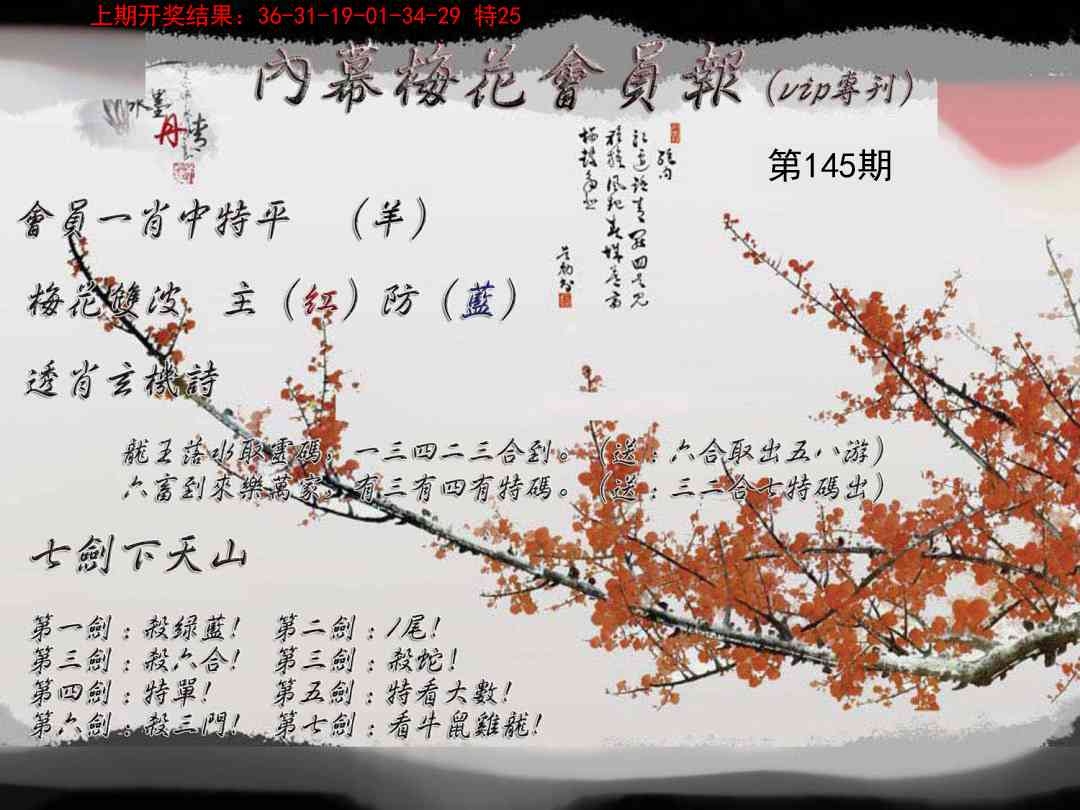 上期开奖结果：36-31-19-01-34-29 特25
內幕梅花會員報(vip專刊)
水墨
丹情
第145期
會員一肖中特平 （羊）
梅花雙波 主（紅）防（藍）
透肖玄機詩
龍王落水取靈碼，一三四二三合到。（送：六合取出五八游）
六畜到來樂萬家，有三有四有特碼。（送：三二合七特碼出）
七劍下天山
第一劍：殺绿藍！ 第二劍：1尾！
第三劍：殺六合！ 第三劍：殺蛇！
第四劍：特單！ 第五劍：特看大數！
第六劍：殺三門！ 第七劍：看牛鼠雞龍！